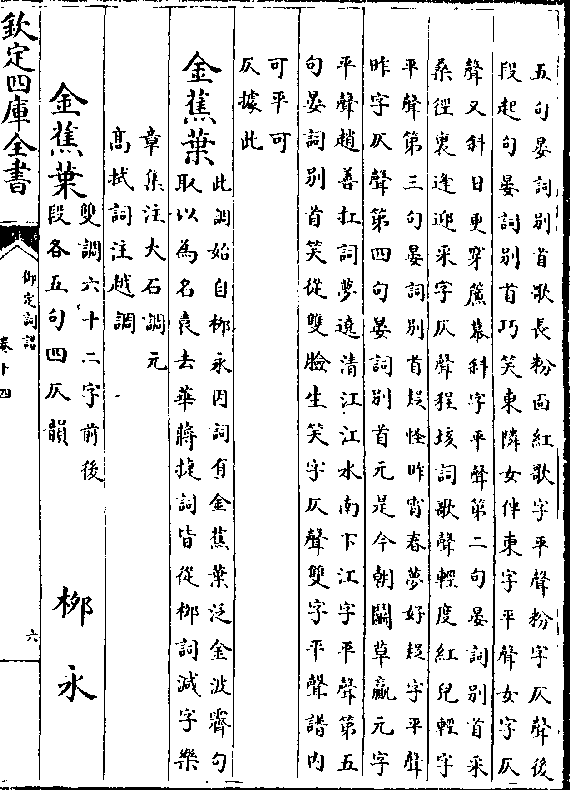 五句晏詞別首歌長粉面紅歌字平聲粉字仄聲後
段起句晏詞別首巧笑東隣女伴東字平聲女字仄
聲又斜日更穿簾幕斜字平聲第二句晏詞別首采
桑徑裏逢迎采字仄聲程垓詞歌聲輕度紅兒輕字
平聲第三句晏詞別首疑怪昨宵春夢好疑字平聲
昨字仄聲第四句晏詞別首元是今朝鬬草贏元字
平聲趙善扛詞夢遶清江江水南下江字平聲第五
句晏詞別首笑從雙臉生笑字仄聲雙字平聲譜內
可平可
仄據此
金蕉葉
此調始自柳永因詞有金蕉葉泛金波霽句
取以為名袁去華蔣捷詞皆從柳詞減字樂
章集注大石調元
高拭詞注越調
金蕉葉
雙調六十二字前後
段各五句四仄韻
柳永
欽定四庫全書
御定詞譜
卷十四
六